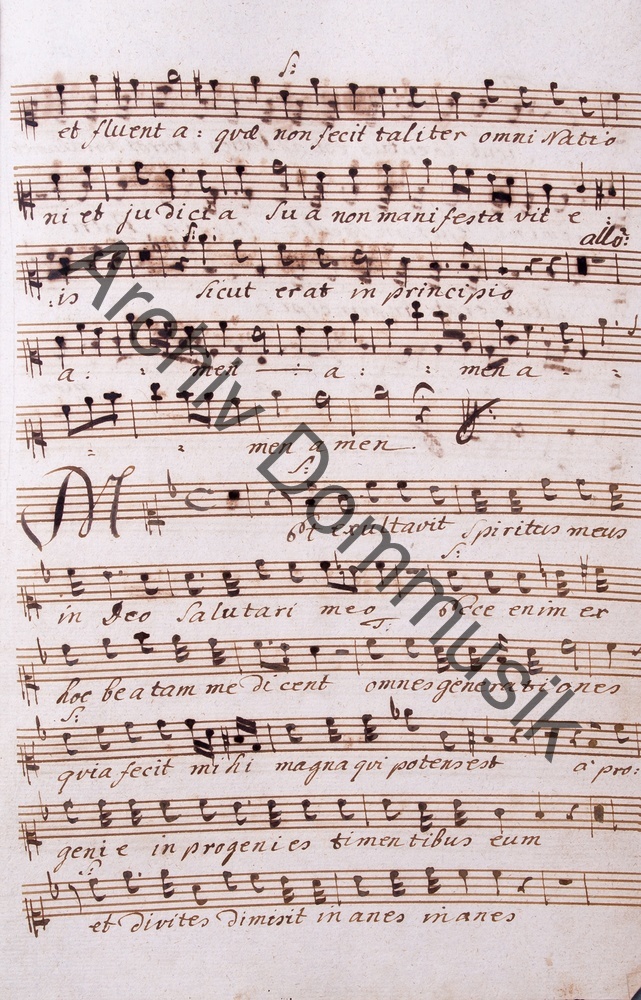 et fluenta: quæ non fecit taliter omni Natio
ni et judicia sua non manifestavit e
allo:
is sicut erat in principio
a: men a: : men a : :
: : men amen.
M Et exultavit spiritus meus
in Deo salutari meo Ecce enim ex
hoc beatam me dicent omnes generationes
quia fecit mihi magna qui potens est a pro:
genie in progenies timentibus eum
et divites dimisit inanes inanes
Archiv Dommusik